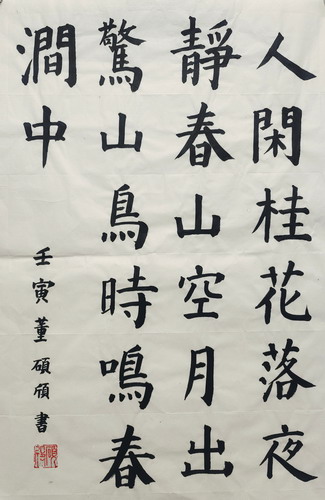 人閑桂花落夜
靜春山空月出
驚山鳥時鳴春
澗中
壬寅董碩頎書